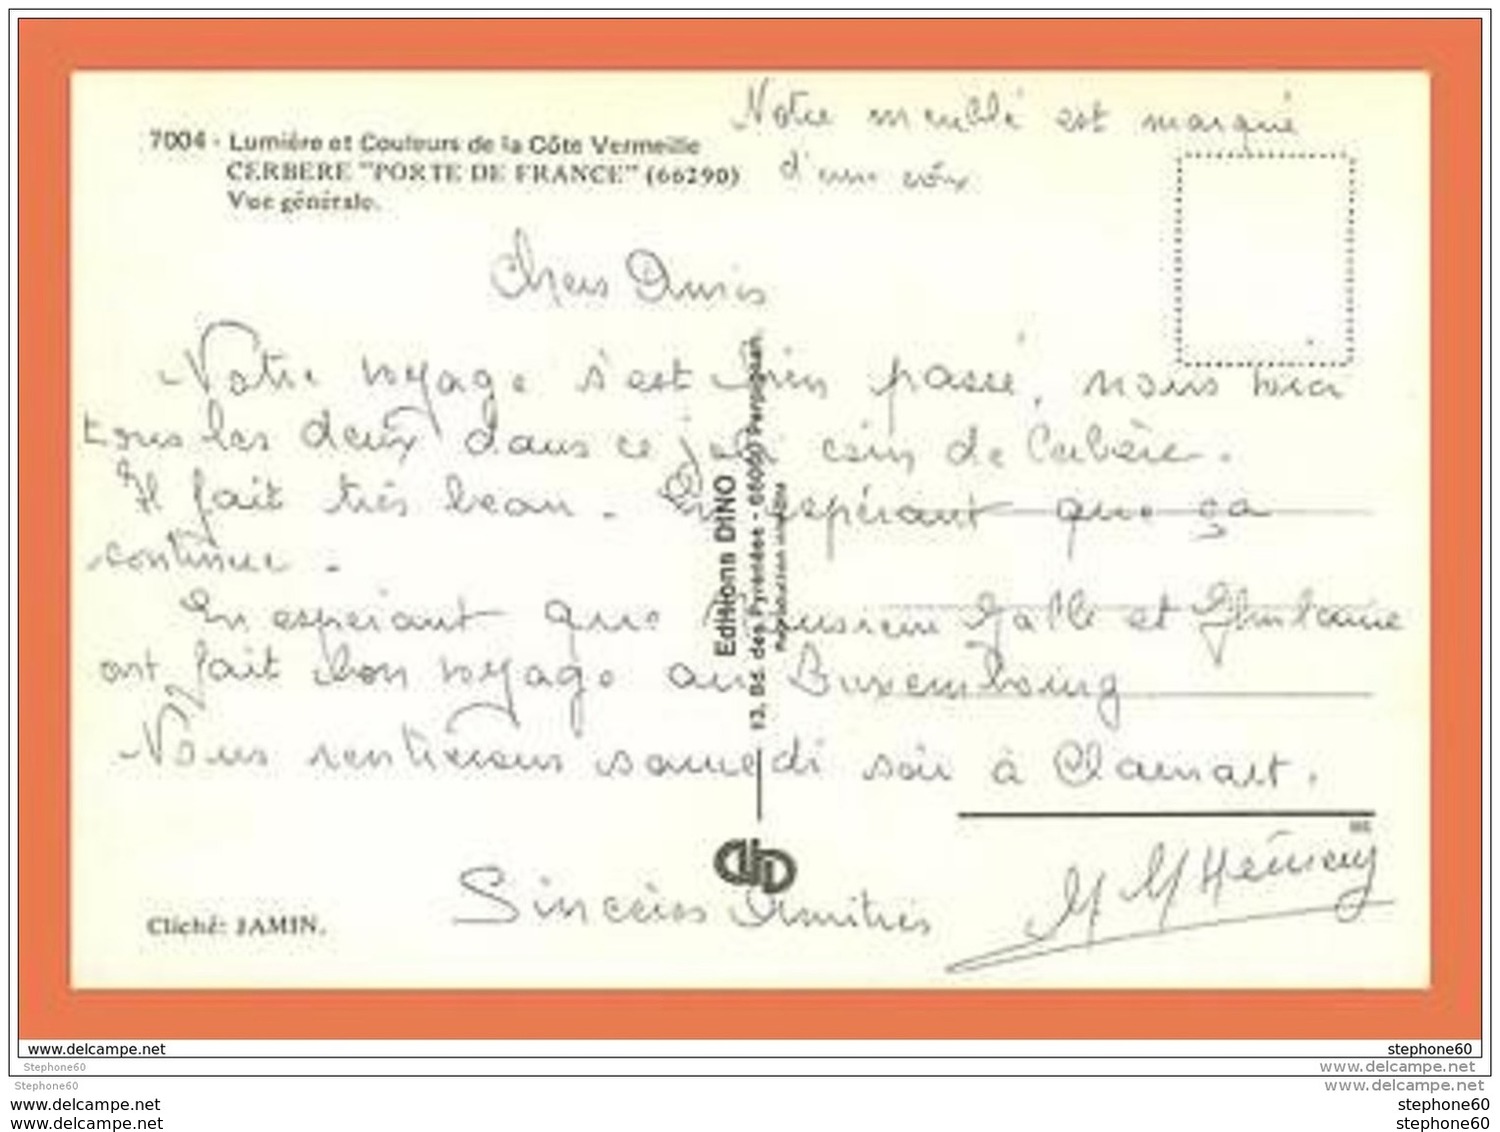 Notre meublé est marqué
d'une croix
7004 - Lumière et Couleurs de la Côte Vermeille
CERBERE "PORTE DE FRANCE" (66290)
Vue générale.
Chers Amis
Notre voyage s'est bien passé, nous voici
tous les deux dans ce joli coin de Cerbère.
Il fait très beau. En espérant que ça
continue.
En espérant que Monsieur Galle et Ghislaine
ont fait bon voyage au Luxembourg
Nous rentrerons samedi soir à Clamart.
Sincères Amitiés
M M
Editions DINO
13, Bd. des Pyrénées - 66000 Perpignan
Reproduction interdite
Cliché: JAMIN.
www.delcampe.net
stephone60
Stephone60
www.delcampe.net
Stephone60
www.delcampe.net
www.delcampe.net
stephone60
www.delcampe.net
stephone60